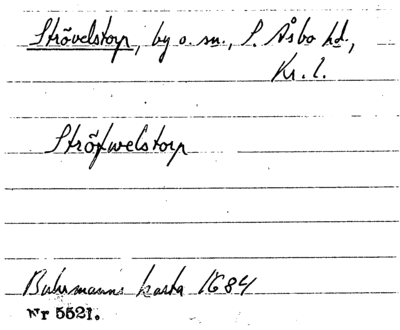 Strövelstorp, by o. sn., S. Åsbo hd.,
Kr. l.
Ströfwelstorp
Buhrmanns karta 1684
Nr 5521.